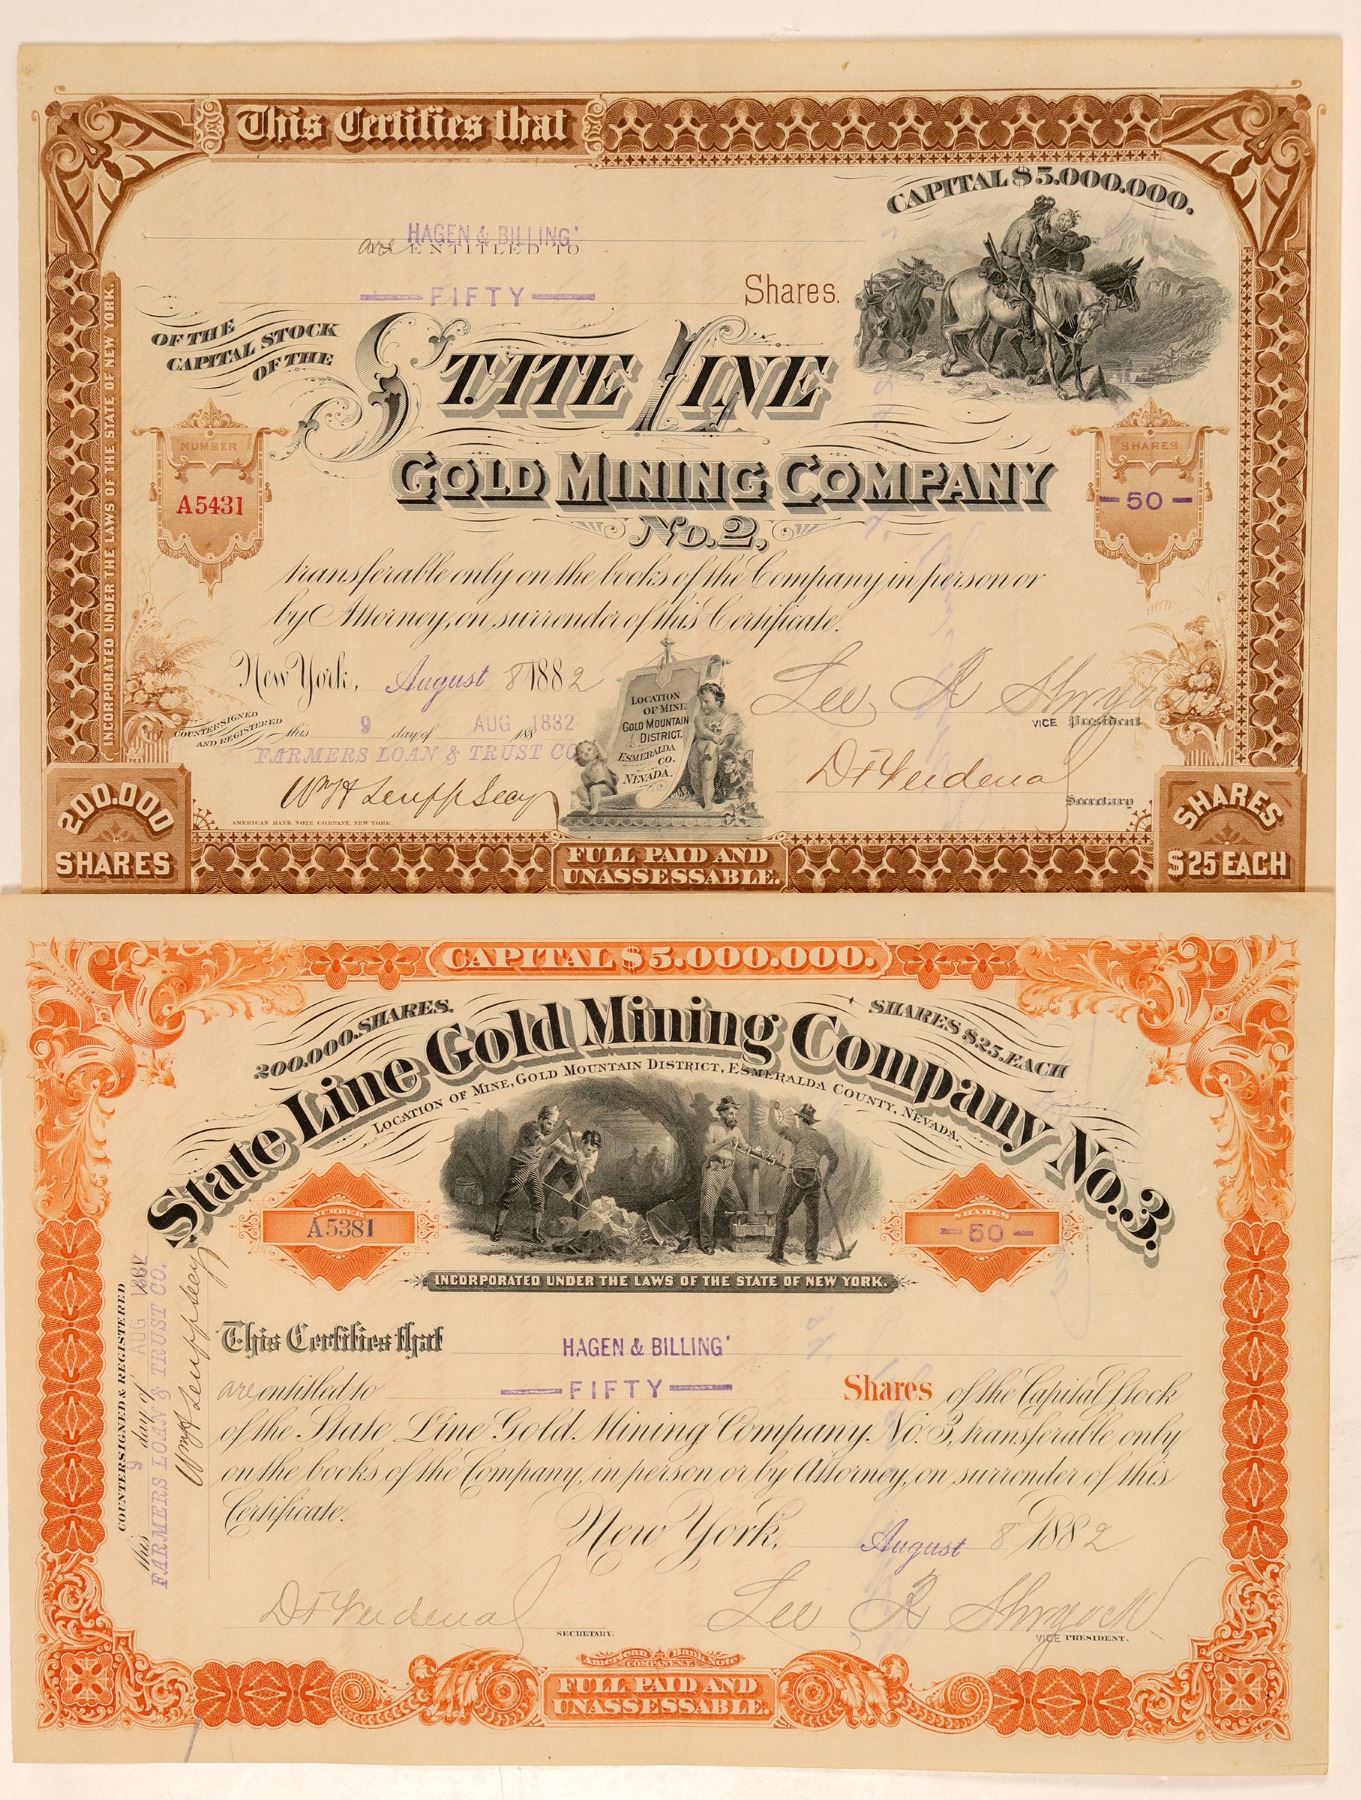 This Certifies that
CAPITAL $5.000.000.
HAGEN & BILLING'
are ENTITLED TO
FIFTY Shares.
OF THE
CAPITAL STOCK
OF THE
STATE LINE
GOLD MINING COMPANY
No. 2,
NUMBER
A5431
SHARES
50
transferable only on the books of the Company in person or
by Attorney, on surrender of this Certificate.
New York, August 8 1882
COUNTERSIGNED
AND REGISTERED
this 9 day of AUG 1882 188
FARMERS LOAN & TRUST CO
LOCATION
OF MINE
GOLD MOUNTAIN
DISTRICT,
ESMERALDA
CO.
NEVADA.
Lee R Shryock
VICE President
Secretary
AMERICAN BANK NOTE COMPANY, NEW YORK.
INCORPORATED UNDER THE LAWS OF THE STATE OF NEW YORK.
200.000
SHARES
FULL PAID AND
UNASSESSABLE.
SHARES
$25 EACH
CAPITAL $5.000.000.
200.000. SHARES.
SHARES $25. EACH
State Line Gold Mining Company No. 3.
LOCATION OF MINE, GOLD MOUNTAIN DISTRICT, ESMERALDA COUNTY, NEVADA.
NUMBER
A5381
SHARES
50
INCORPORATED UNDER THE LAWS OF THE STATE OF NEW YORK.
This Certifies that HAGEN & BILLING'
are entitled to FIFTY Shares of the Capital Stock
of the State Line Gold Mining Company No. 3, transferable only
on the books of the Company, in person or by Attorney, on surrender of this
Certificate.
New York, August 8 1882
COUNTERSIGNED & REGISTERED
this 9 day of AUG 1882
FARMERS LOAN & TRUST CO.
SECRETARY.
Lee R Shryock
VICE PRESIDENT.
American Bank Note
COMPANY N.Y.
FULL PAID AND
UNASSESSABLE.